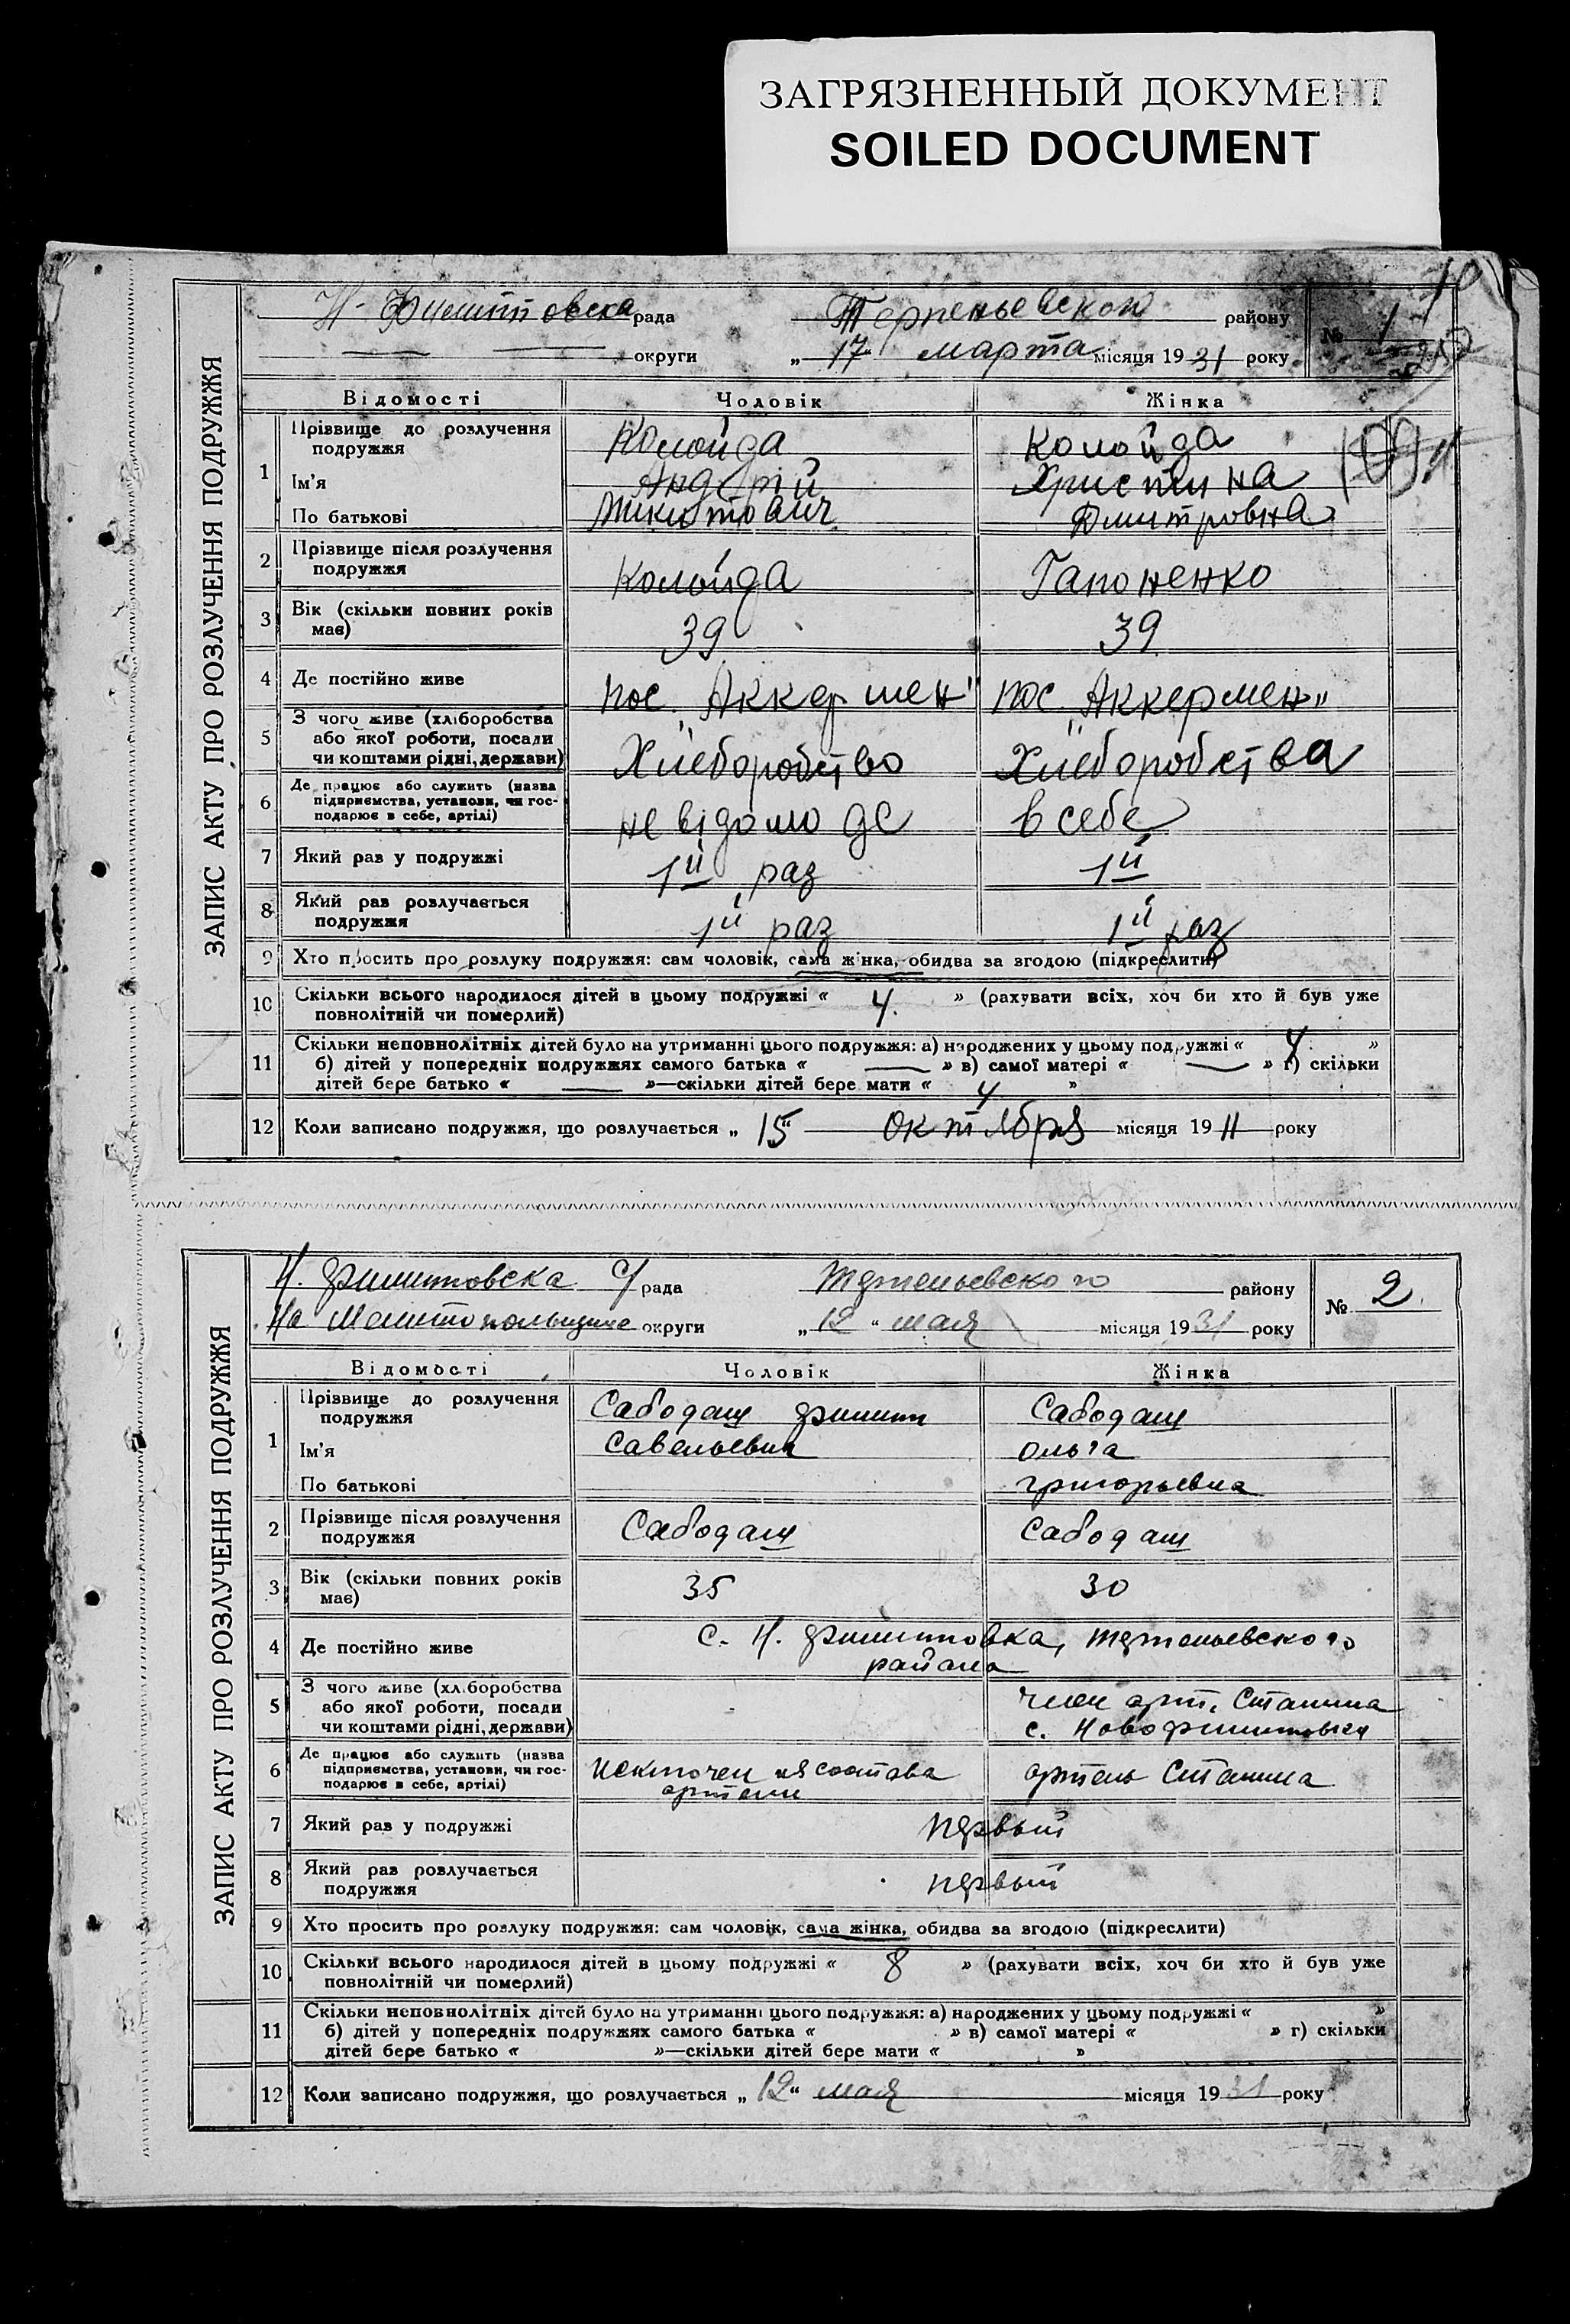 ЗАГРЯЗНЕННЫЙ ДОКУМЕНТ
SOILED DOCUMENT
ЗАПИС АКТУ ПРО РОЗЛУЧЕННЯ ПОДРУЖЖЯ
Н-Филиповска рада Терпеньевского району № 1
округи „17" марта місяця 1931 року
Відомості Чоловік Жінка
1 Прізвище до розлучення подружжя Колойда Колойда
Ім'я Андрій Христина
По батькові Микитович Дмитровна
2 Прізвище після розлучення подружжя Колойда Гапоненко
3 Вік (скільки повних років має) 39 39
4 Де постійно живе пос. „Аккермен" пос. „Аккермен"
5 З чого живе (хліборобства або якої роботи, посади чи коштами рідні, держави) Хлеборобство Хлеборобства
6 Де працює або служить (назва підприємства, установи, чи господарює в себе, артілі) не відомо де в себе
7 Який раз у подружжі 1й раз 1й
8 Який раз розлучається подружжя 1й раз 1й раз
9 Хто просить про розлуку подружжя: сам чоловік, сама жінка, обидва за згодою (підкреслити)
10 Скільки всього народилося дітей в цьому подружжі « 4. » (рахувати всіх, хоч би хто й був уже
повнолітній чи померлий)
11 Скільки неповнолітніх дітей було на утриманні цього подружжя: а) народжених у цьому подружжі « 4 »
б) дітей у попередніх подружжях самого батька « — » в) самої матері « — » г) скільки
дітей бере батько « — »—скільки дітей бере мати « 4 »
12 Коли записано подружжя, що розлучається „15" октября місяця 1911 року
ЗАПИС АКТУ ПРО РОЗЛУЧЕННЯ ПОДРУЖЖЯ
Н. Филиповска с/рада Терпеньевского району № 2.
На Мелитопольщине округи „12" мая місяця 1931 року
Відомості Чоловік Жінка
1 Прізвище до розлучення подружжя Сабодаш Филипп Сабодаш
Ім'я Савельевич Ольга
По батькові Григорьевна
2 Прізвище після розлучення подружжя Сабодаш Сабодаш
3 Вік (скільки повних років має) 35 30
4 Де постійно живе с. Н. Филиповка, Терпеньевского
района
5 З чого живе (хліборобства або якої роботи, посади чи коштами рідні, держави) член арт. Сталина
с. Новофилиповки
6 Де працює або служить (назва підприємства, установи, чи господарює в себе, артілі) исключен из состава артели артель Сталина
7 Який раз у подружжі первый
8 Який раз розлучається подружжя первый
9 Хто просить про розлуку подружжя: сам чоловік, сама жінка, обидва за згодою (підкреслити)
10 Скільки всього народилося дітей в цьому подружжі « 8 » (рахувати всіх, хоч би хто й був уже
повнолітній чи померлий)
11 Скільки неповнолітніх дітей було на утриманні цього подружжя: а) народжених у цьому подружжі « »
б) дітей у попередніх подружжях самого батька « » в) самої матері « » г) скільки
дітей бере батько « »—скільки дітей бере мати « »
12 Коли записано подружжя, що розлучається „12" мая місяця 1931 року